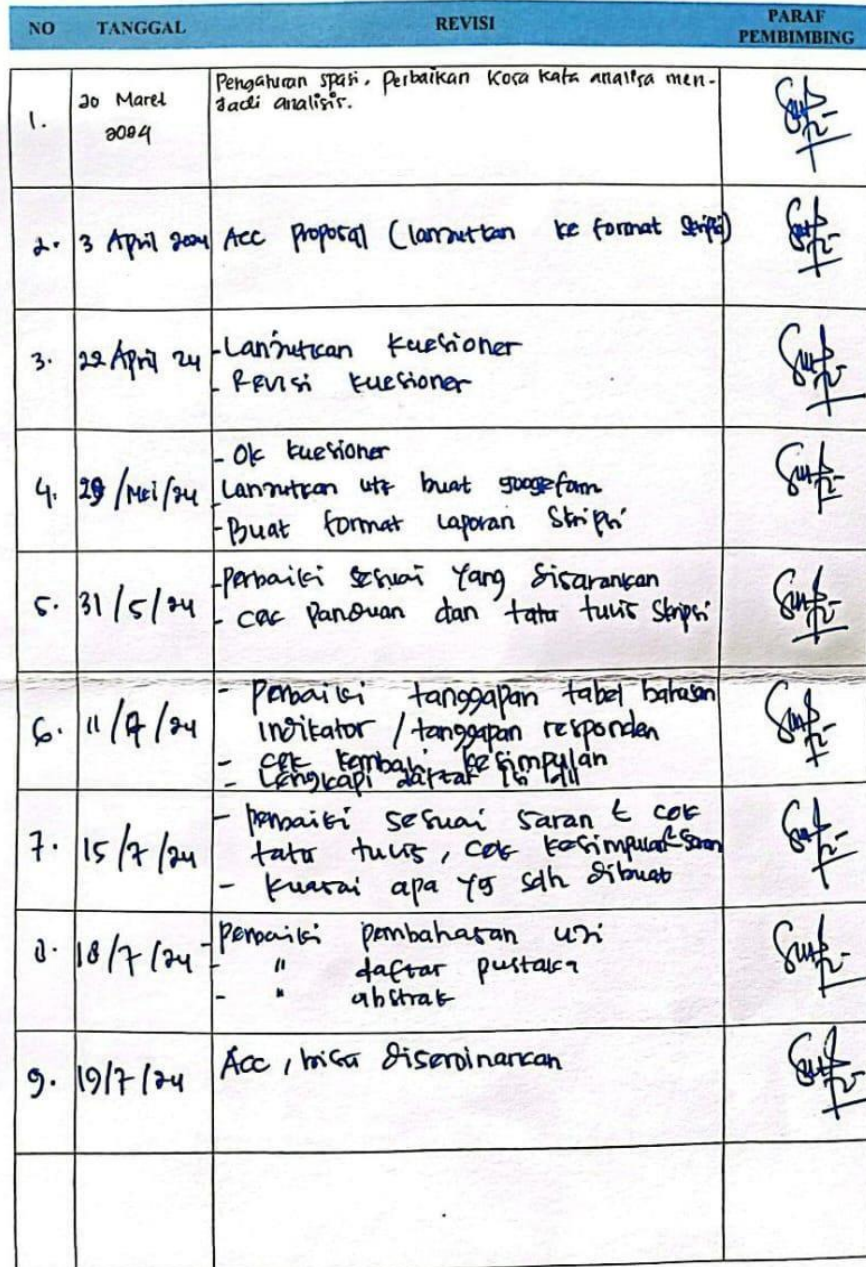 NO TANGGAL REVISI PARAF PEMBIMBING
1. 20 Maret 2024 Pengaturan spasi, Perbaikan kosa kata analisa men-
jadi analisis.
2. 3 April 2024 Acc proposal (lanjutkan ke format skripsi)
3. 22 April 24 - Lanjutkan kuesioner
- Revisi kuesioner
4. 29/Mei/24 - Ok kuesioner
- Lanjutkan utk buat googefom
- Buat format laporan skripsi
5. 31/5/24 - Perbaiki sesuai yang disarankan
- cek Panduan dan tata tulis skripsi
6. 11/7/24 - Perbaiki tanggapan tabel bahasan
indikator / tanggapan responden
- cek kembali kesimpulan
- Lengkapi daftar isi dll
7. 15/7/24 - Perbaiki sesuai saran & cek
tata tulis, cek kesimpulan & saran
- kuasai apa yg sdh dibuat
8. 18/7/24 - Perbaiki pembahasan uji
- " daftar pustaka
- " abstrak
9. 19/7/24 Acc, bisa diseminarkan